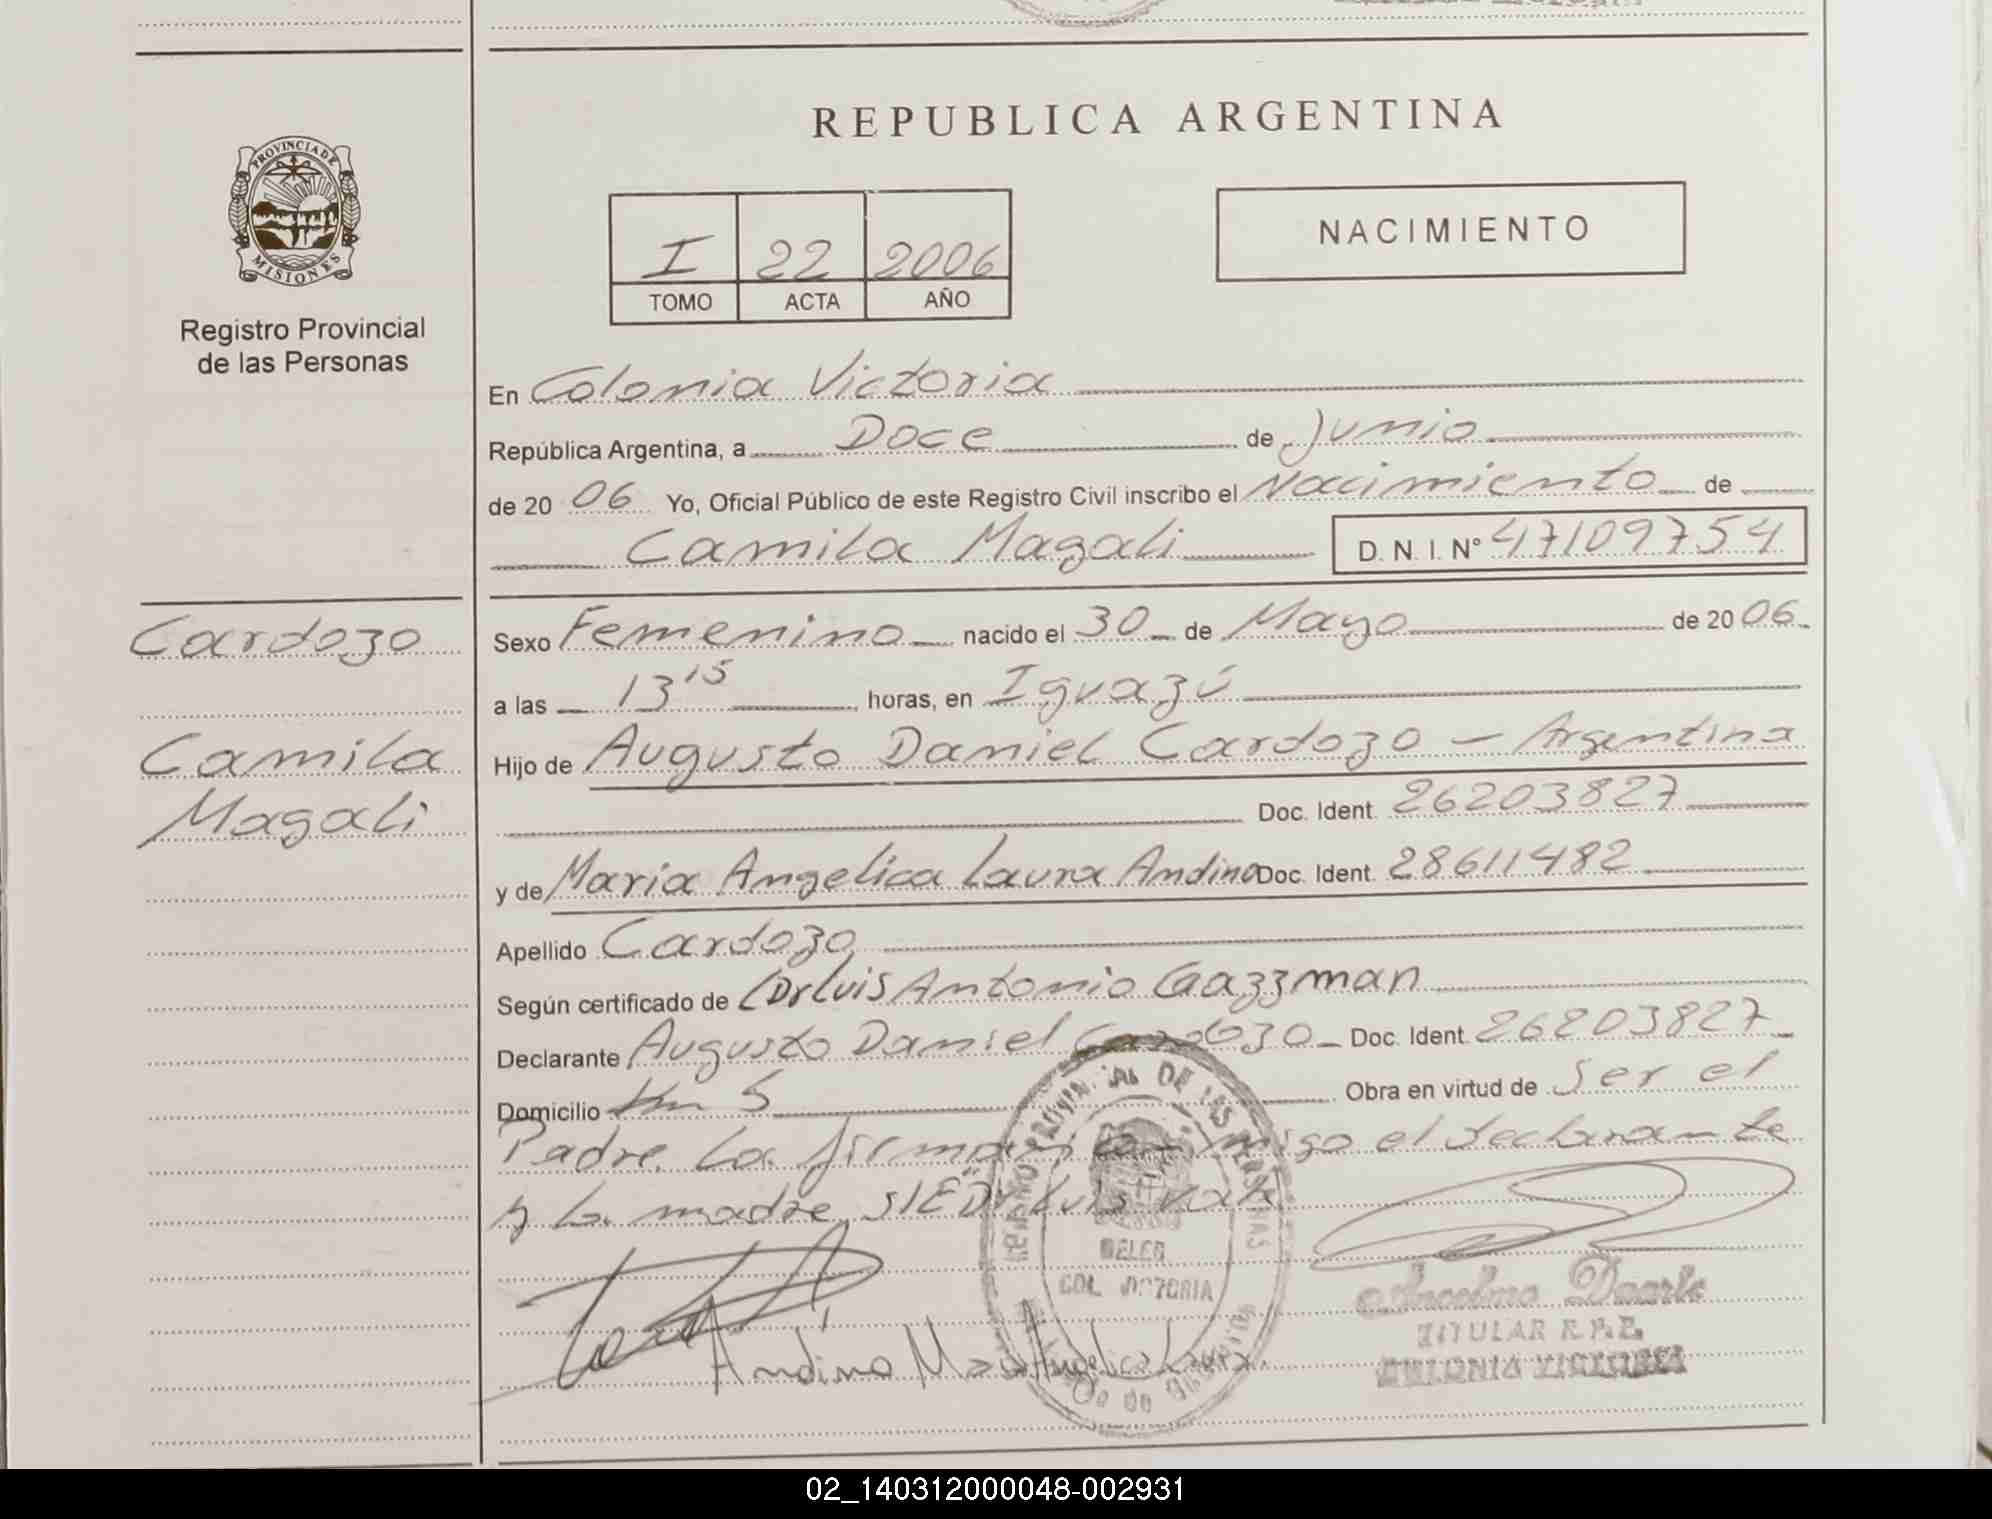 REPUBLICA ARGENTINA
PROVINCIA DE
MISIONES
Registro Provincial
de las Personas
I 22 2006
TOMO ACTA AÑO
NACIMIENTO
En Colonia Victoria
República Argentina, a Doce de Junio
de 20 06 Yo, Oficial Público de este Registro Civil inscribo el Nacimiento de
Camila Magali D. N. I. Nº 47109754
Cardozo
Camila
Magali
Sexo Femenino nacido el 30 de Mayo de 20 06
a las 13 15 horas, en Iguazú
Hijo de Augusto Daniel Cardozo - Argentina
Doc. Ident. 26203827
y de Maria Angelica Laura Andino Doc. Ident. 28611482
Apellido Cardozo
Según certificado de Dr Luis Antonio Gazzman
Declarante Augusto Daniel Cardozo Doc. Ident. 26203827
Domicilio Km 5 Obra en virtud de Ser el
Padre. La firman conmigo el declarante
y la madre
Andino Maria Angelica Laura
DELEG.
COL. VICTORIA
Anselmo Duarte
TITULAR R.P.P.
COLONIA VICTORIA
02_140312000048-002931